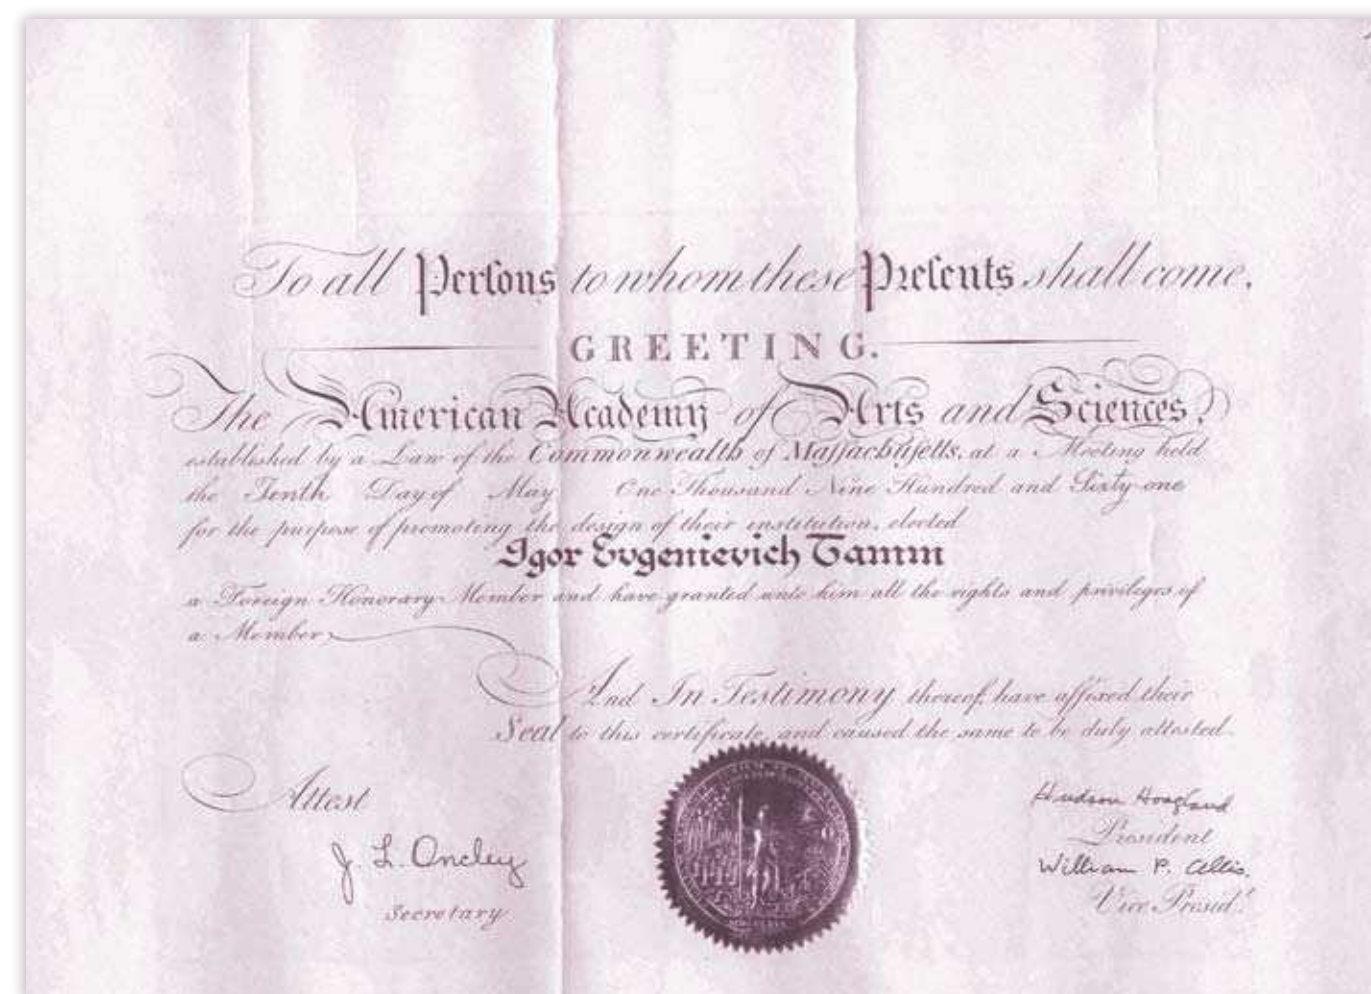 To all Perſons to whom these Preſents shall come,
GREETING.
The American Academy of Arts and Sciences,
established by a Law of the Commonwealth of Maſſachuſetts, at a Meeting held
the Tenth Day of May One Thousand Nine Hundred and Sixty-one
for the purpose of promoting the design of their institution, elected
Igor Evgenievich Tamm
a Foreign Honorary Member and have granted unto him all the rights and privileges of
a Member.
And In Testimony thereof, have affixed their
Seal to this certificate, and caused the same to be duly attested.
Attest
J. L. Oncley
Secretary
Hudson Hoagland
President
William P. Allis.
Vice Presid.t